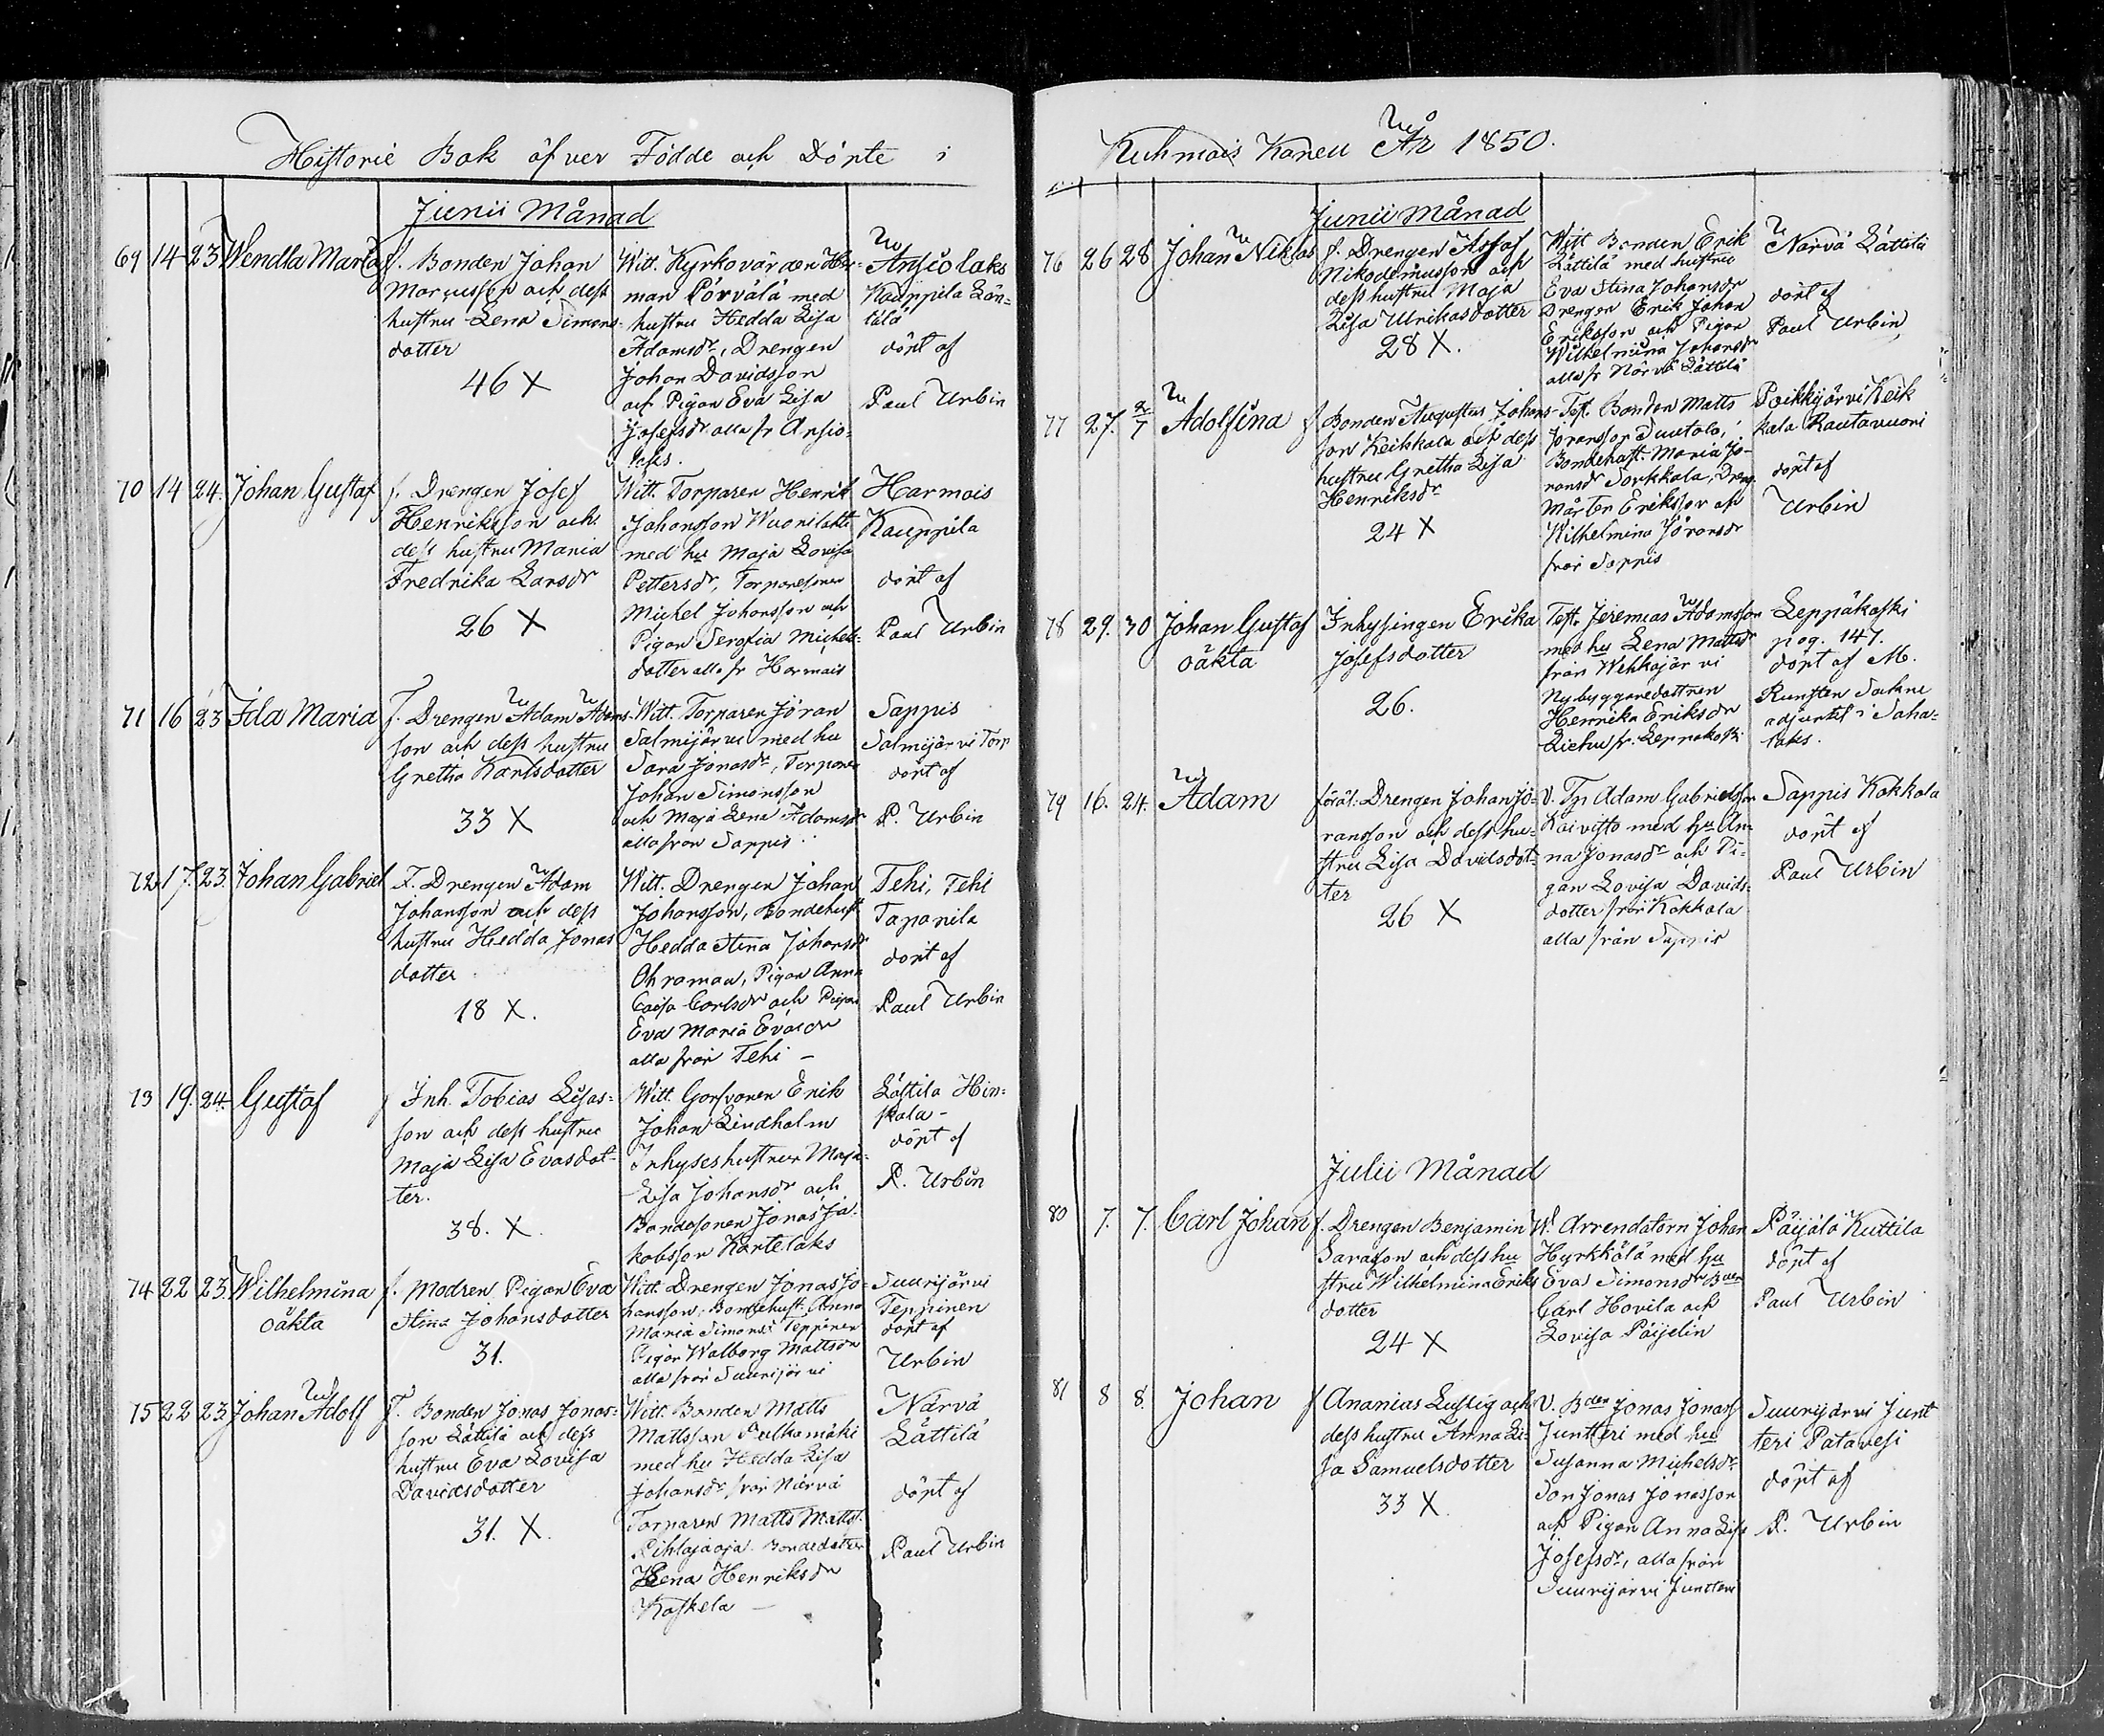 Historie Bok öfver Födde och Döpte i
Junii Månad
69 14 23 Wendla Maria
f. Bonden Johan
Marcusson och dess
hustru Lena Simons-
dotter
46 X
Witt. Kyrkovärden Her-
man Pörvälä med
hustru Hedda Lisa
Adamsdr, Drengen
Johan Davidsson
och Pigan Eva Lisa
Josefsdr alla fr Ansio-
laks.
Ansiolaks
Kauppila Län-
tälä
döpt af
Paul Urbin
70 14 24. Johan Gustaf
f. Drengen Josef
Henriksson och
dess hustru Maria
Fredrika Larsdr
26 X
Witt. Torparen Henrik
Johansson Wuorilahti
med hu Maja Lovisa
Pettersdr, Torparesonen
Michel Johansson och
Pigan Serafia Michels-
dotter alla fr Harmois
Harmois
Kauppila
döpt af
Paul Urbin
71 16 23 Ida Maria
f. Drengen Adam Adams-
son och dess hustru
Gretha Karlsdotter
33 X
Witt. Torparen Jöran
Salmijärvi med hu
Sara Jonasdr, Torparen
Johan Simonsson
och Maja Lena Adamsdr
alla från Sappis.
Sappis
Salmijärvi Torp
döpt af
P. Urbin
72 17. 23. Johan Gabriel
F. Drengen Adam
Johansson och dess
hustru Hedda Jonas
dotter
18 X.
Witt. Drengen Johan
Johansson, Bondehust
Hedda Stina Johansdr
Ohraman, Pigan Anna
Caisa Carlsdr och Pigan
Eva Maria Evasdr
alla från Tehi –
Tehi, Tehi
Tapanila
döpt af
Paul Urbin
73 19. 24. Gustaf
f Inh. Tobias Lisas-
son och dess hustru
Maja Lisa Evasdot-
ter.
38. X.
Witt. Garfvaren Erik
Johan Lindholm
Inhyseshustrur Maja
Lisa Johansdr och
Bondesonen Jonas Ja-
kobsson Kärtelaks
Lättila Hin-
skala –
döpt af
P. Urbin
74 22 23. Wilhelmina
oäkta
f. Modren Pigan Eva
Stina Johansdotter
31.
Witt. Drengen Jonas Jo-
hansson, Bondehust. Anna
Maria Simonsdr Teppinen
Pigan Walborg Mattsdr
alla från Suurijärvi
Suurijärvi
Teppinen
döpt af
Urbin
75 22 23 Johan Adolf
F. Bonden Jonas Jonas-
son Lättilä och dess
hustru Eva Lovisa
Davidsdotter
31. X.
Witt. Bonden Matts
Mattsson Pulkamäki
med hu Hedda Lisa
Johansdr från Närvä
Torparen Matts Mattss.
Pihlajaoja. Bondedotren
Lena Henriksdr
Kaskela –
Närvä
Lättilä
döpt af
Paul Urbin
Kuhmois Kapell År 1850.
Junii Månad
76 26 28 Johan Niklas
f. Drengen Assaf
Nikodemusson och
dess hustru Maja
Lisa Ulrikasdotter
28 X.
Witt Bonden Erik
Lättilä med hustru
Eva Stina Johansdr
Drengen Erik Johan
Eriksson och Pigan
Wilhelmina Johansdr
alla fr Närvä Lättilä
Närvä Lättilä
döpt af
Paul Urbin
77 27. 2/7 Adolfina
f Bonden Augustus Johans-
son Keikkala och dess
hustru Gretha Lisa
Henriksdr
24 X
Test. Bonden Matts
Jöransson Suutala,
Bondehust. Maria Jö-
ransdr Sorkkala, Dreng.
Mårten Eriksson och
Wilhelmina Jöransdr
från Sappis
Poikkijärvi Keik
kala Rautavuori
döpt af
Urbin
78 29. 30 Johan Gustaf
oäkta
Inhysingen Erika
Josefsdotter
26.
Test. Jeremias Adamsson
med hu Lena Mattsdr
från Wehkajärvi
Nybyggaredottren
Henrika Eriksdr
Liehu fr. Leppäkoski
Leppäkoski
pag. 147.
döpt af M.
Runsten Sockne
adjunkt i Saha-
laks.
79 16. 24. Adam
föräl: Drengen Johan Jö-
ransson och dess hu-
stru Lisa Davidsdot-
ter
26 X
V. Tp Adam Gabrielsson
Koivisto med hu An-
na Jonasdr och Pi-
gan Lovisa Davids-
dotter från Kokkala
alla från Sappis
Sappis Kokkola
döpt af
Paul Urbin
Julii Månad
80 7. 7. Carl Johan
f. Drengen Benjamin
Sarason och dess hu
stru Wilhelmina Eriks
dotter
24 X
Wt Arrendatorn Johan
Hyrkkälä med hu
Eva Simonsdr Bden
Carl Hovila och
Lovisa Päijelin
Päijälä Kuttila
döpt af
Paul Urbin
81 8 8. Johan
f Ananias Lustig och
dess hustru Anna Li-
sa Samuelsdotter
33 X.
V. Bden Jonas Jonass
Juntteri med hu
Susanna Michelsdr
Son Jonas Jonasson
och Pigan Anna Lisa
Josefsdr, alla från
Suurijärvi Juntteri
Suurijärvi Junt
teri Patavesi
döpt af
P. Urbin